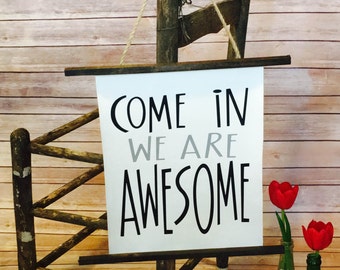 COME iN
WE ARE
AWESOME